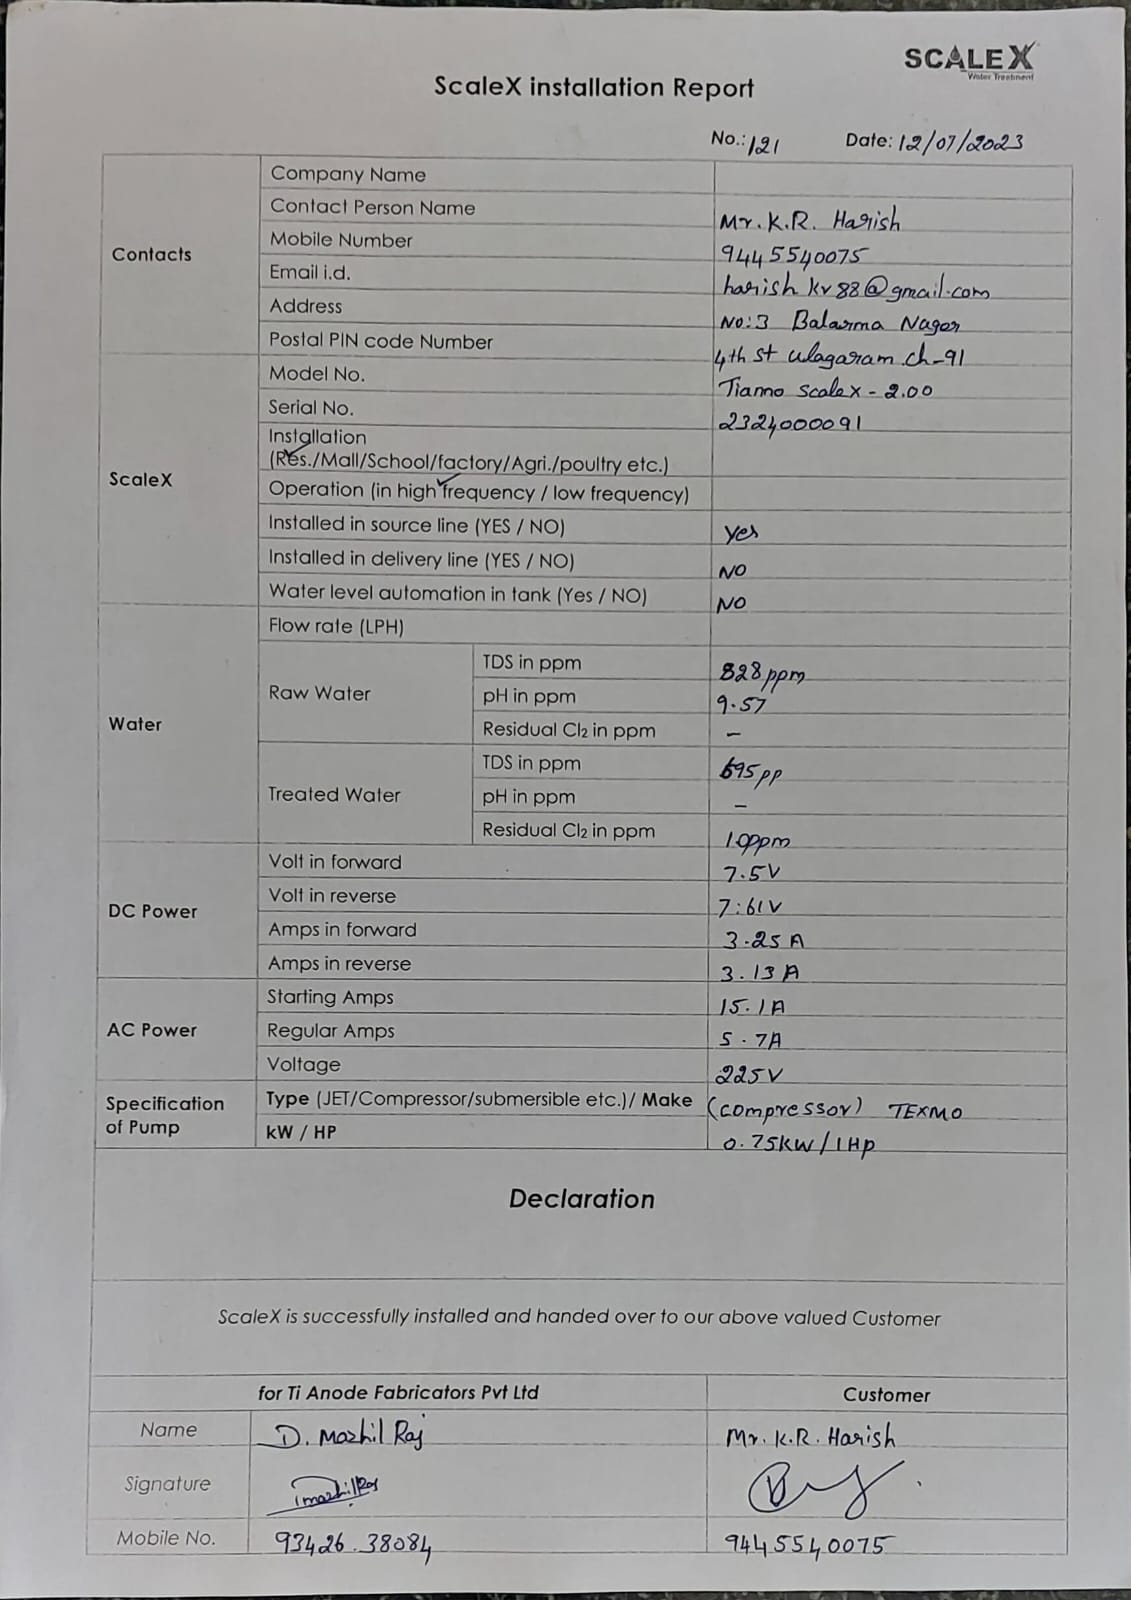 SCALEX
Water Treatment
ScaleX installation Report
No.: 121 Date: 12/07/2023
Contacts
Company Name
Contact Person Name Mr. K.R. Harish
Mobile Number 9445540075
Email i.d. harish kr88@gmail.com
Address No:3 Balarma Nagar
Postal PIN code Number 4th st ulagaram ch-91
ScaleX
Model No. Tianno scalex - 2.00
Serial No. 2324000091
Installation
(Res./Mall/School/factory/Agri./poultry etc.)
Operation (in high frequency / low frequency)
Installed in source line (YES / NO) yes
Installed in delivery line (YES / NO) NO
Water level automation in tank (Yes / NO) NO
Water
Flow rate (LPH)
Raw Water
TDS in ppm 828 ppm
pH in ppm 9.57
Residual Cl2 in ppm –
Treated Water
TDS in ppm 695 pp
pH in ppm –
Residual Cl2 in ppm 1.0ppm
DC Power
Volt in forward 7.5V
Volt in reverse 7.61V
Amps in forward 3.25 A
Amps in reverse 3.13 A
AC Power
Starting Amps 15.1A
Regular Amps 5.7A
Voltage 225V
Specification
of Pump
Type (JET/Compressor/submersible etc.)/ Make (compressor) TEXMO
kW / HP 0.75kW/1Hp
Declaration
ScaleX is successfully installed and handed over to our above valued Customer
for Ti Anode Fabricators Pvt Ltd Customer
Name D. Mozhil Raj Mr. K.R. Harish
Signature
Mobile No. 93426.38084 9445540075